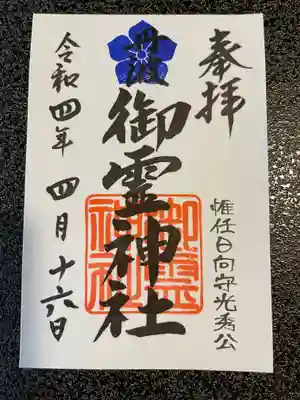 奉拝
惟任日向守光秀公
丹波
御霊神社
御霊神社
令和四年 四月十六日